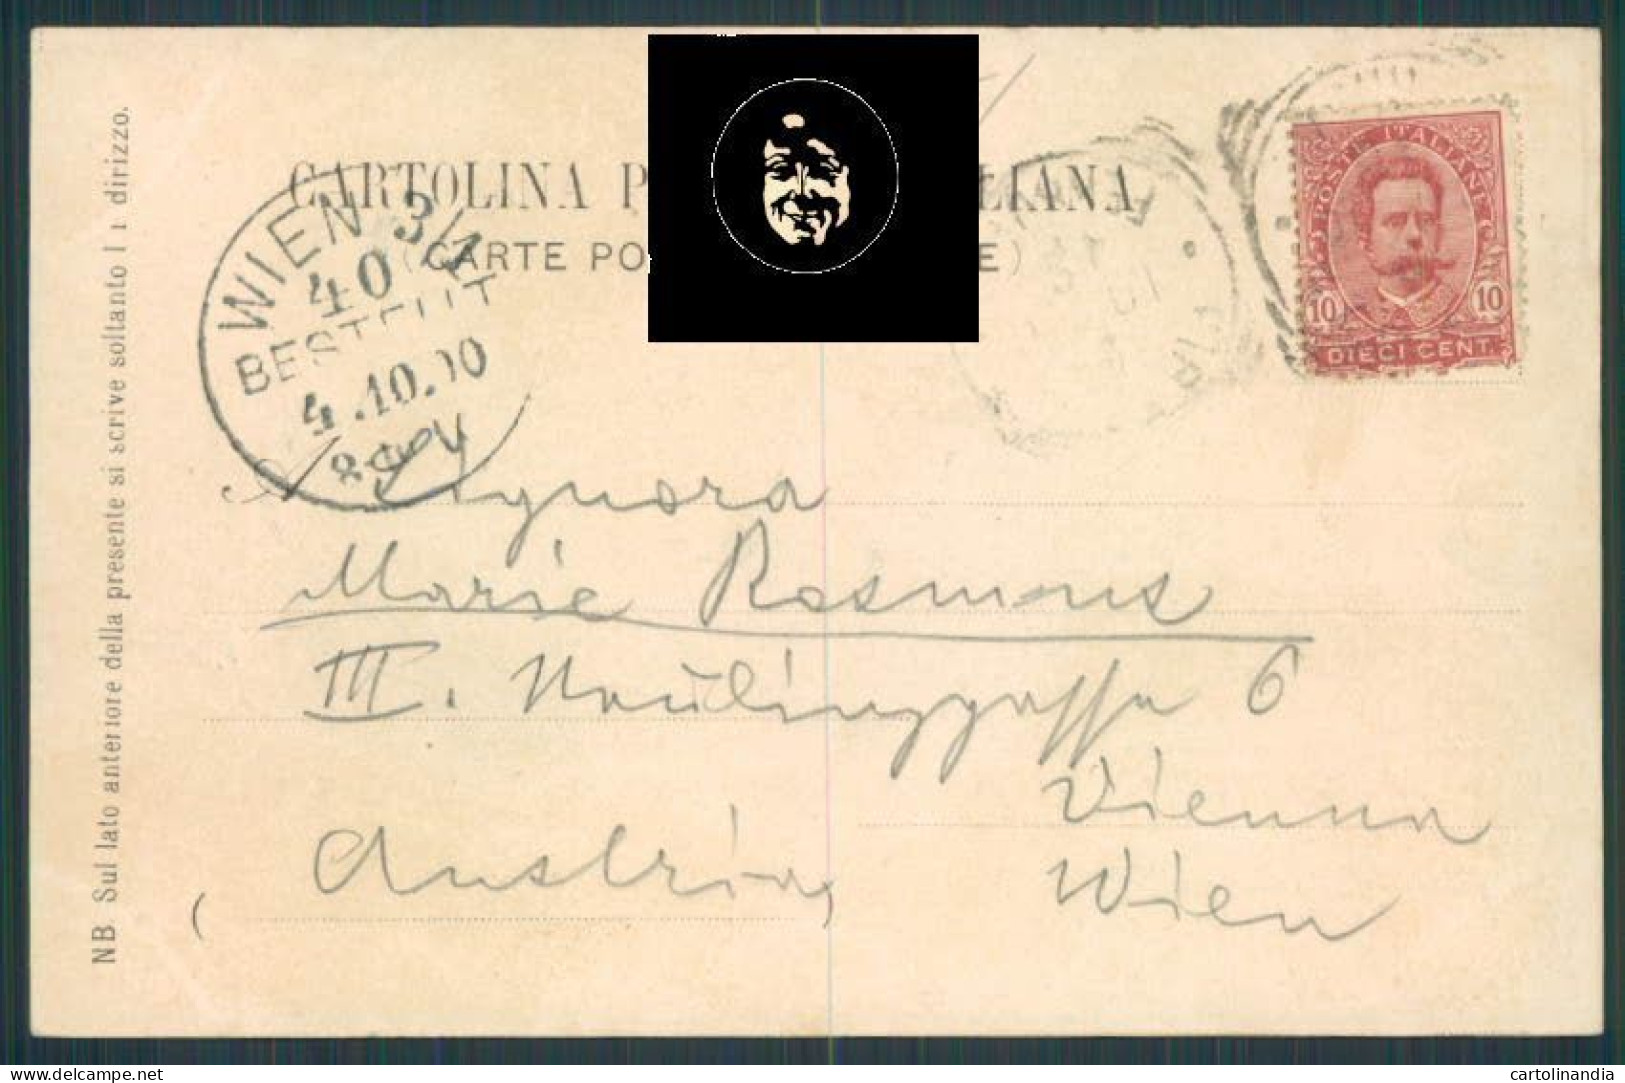 CARTOLINA P LIANA
(CARTE PO E)
WIEN 3/1
40
BESTELLT
4.10.00
POSTE ITALIANE
10 10
DIECI CENT.
Signora
Marie Rosmus
III. gasse 6
Vienna
Austria, Wien
NB. Sul lato anteriore della presente si scrive soltanto l'indirizzo.
cartolinandia